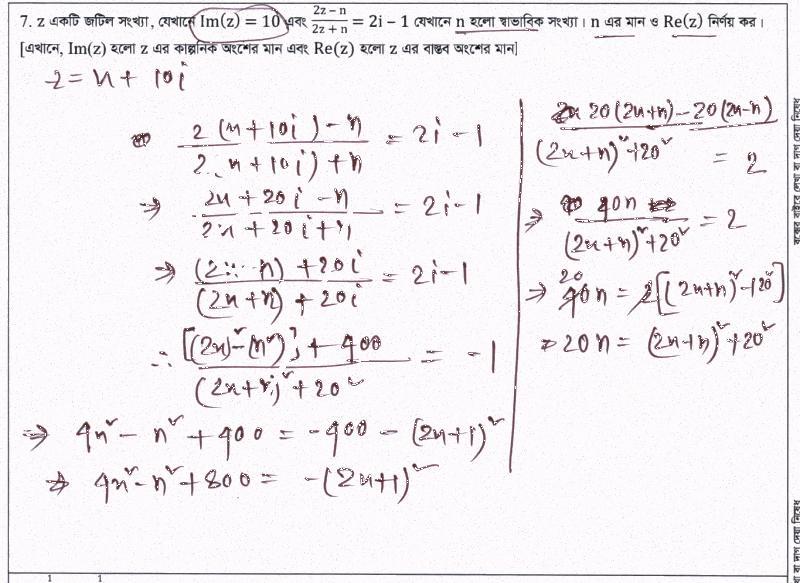 7. z একটি জটিল সংখ্যা, যেখানে Im(z) = 10 এবং (2z − n)/(2z + n) = 2i − 1 যেখানে n হলো স্বাভাবিক সংখ্যা। n এর মান ও Re(z) নির্ণয় কর।
[এখানে, Im(z) হলো z এর কাল্পনিক অংশের মান এবং Re(z) হলো z এর বাস্তব অংশের মান]
z = x + 10i
(2(x+10i) − n)/(2(x+10i) + n) = 2i − 1
⇒ (2x + 20i − n)/(2x + 20i + n) = 2i − 1
⇒ ((2x − n) + 20i)/((2x + n) + 20i) = 2i − 1
∴ ([(2x)² − (n²)] + 400)/((2x + n)² + 20²) = −1
⇒ 4x² − n² + 400 = −400 − (2x+1)²
⇒ 4x² − n² + 800 = −(2x+1)²
(20(2x+n) − 20(2x−n))/((2x+n)² + 20²) = 2
⇒ 40n/((2x+n)² + 20²) = 2
⇒ 40n = 2[(2x+n)² + 20²]
20
⇒ 20n = (2x+n)² + 20²
1 1